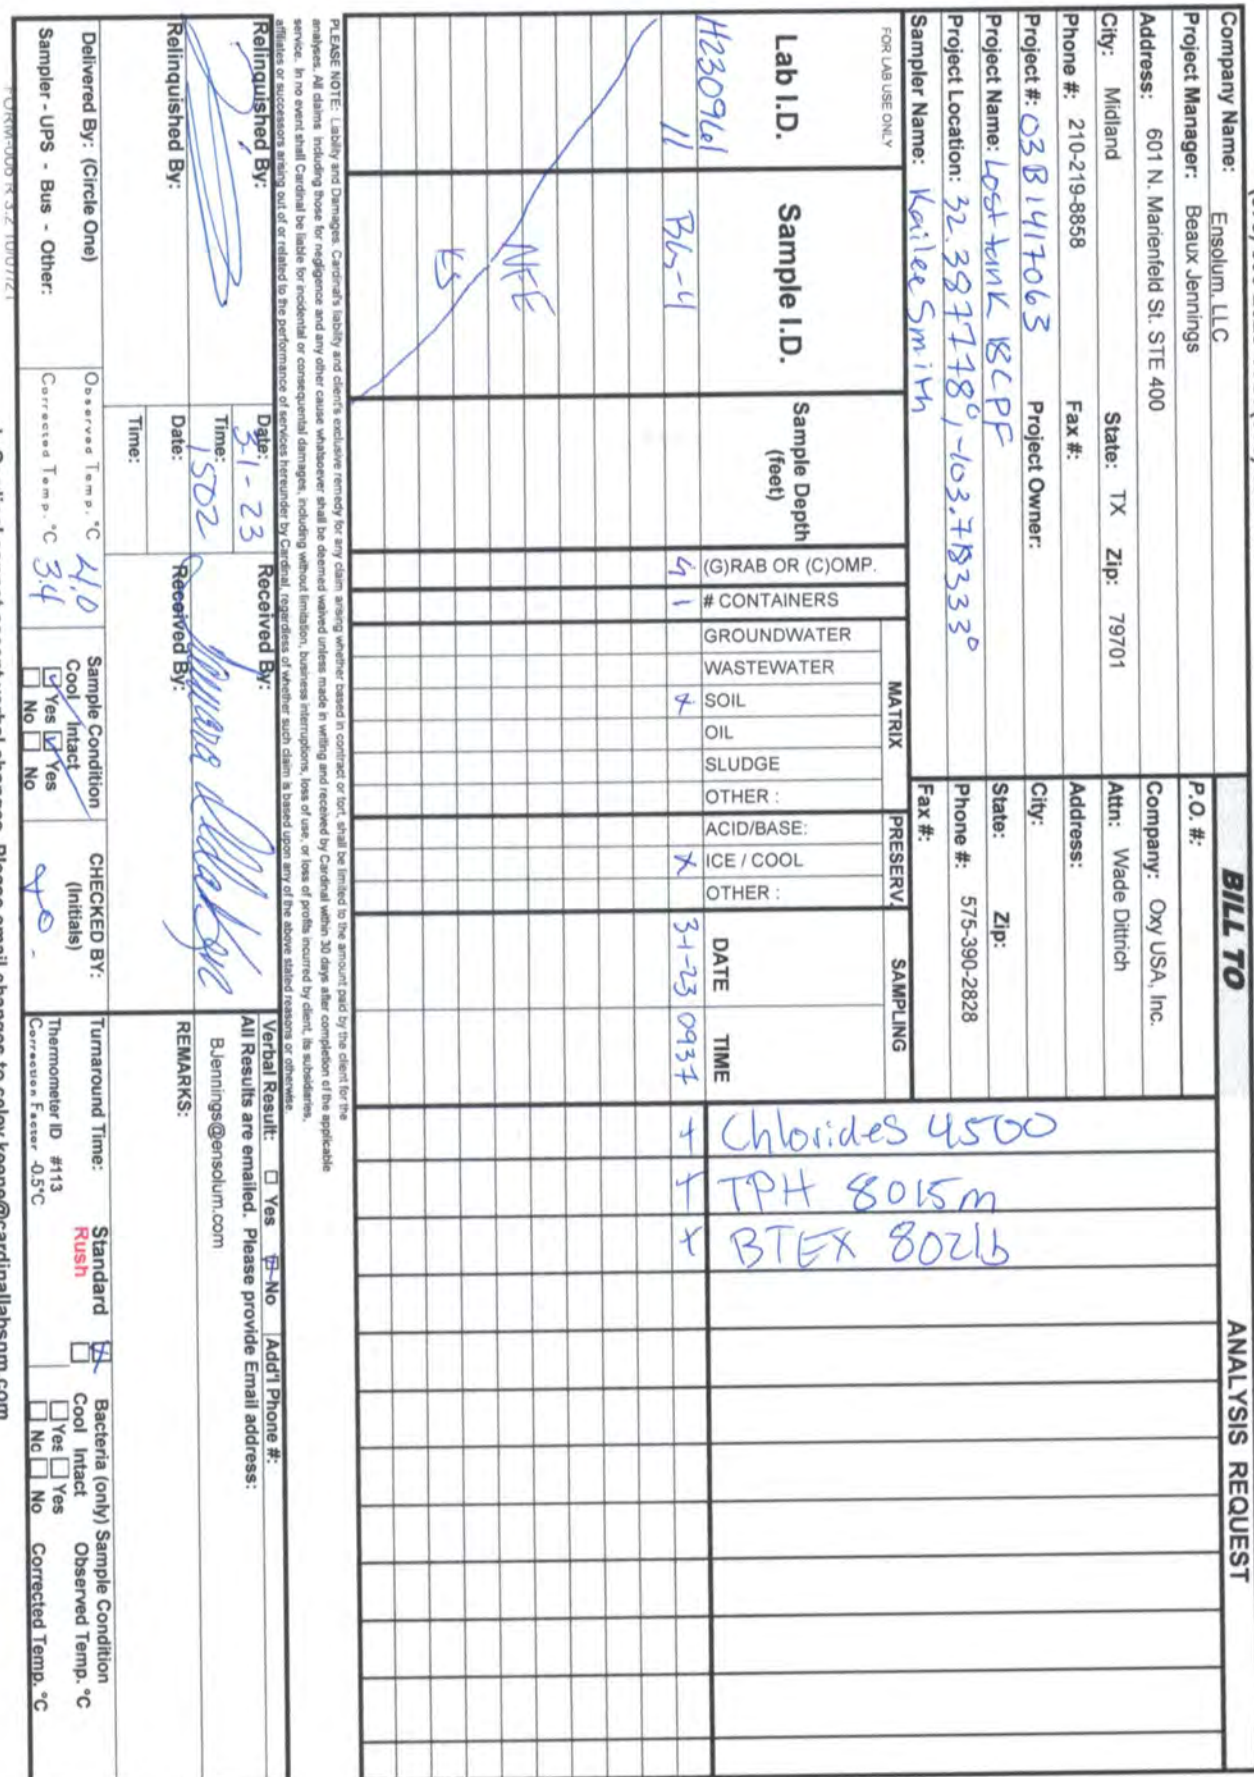 Company Name: Ensolum, LLC
Project Manager: Beaux Jennings
Address: 601 N. Marienfeld St. STE 400
City: Midland State: TX Zip: 79701
Phone #: 210-219-8858 Fax #:
Project #: 03B1417063 Project Owner:
Project Name: Lost tank 18CPF
Project Location: 32.3877778°, -103.7183333°
Sampler Name: Kailee Smith
BILL TO
P.O. #:
Company: Oxy USA, Inc.
Attn: Wade Dittrich
Address:
City:
State: Zip:
Phone #: 575-390-2828
Fax #:
ANALYSIS REQUEST
FOR LAB USE ONLY
Lab I.D.
Sample I.D.
Sample Depth
(feet)
(G)RAB OR (C)OMP.
# CONTAINERS
MATRIX
GROUNDWATER
WASTEWATER
SOIL
OIL
SLUDGE
OTHER :
PRESERV.
ACID/BASE:
ICE / COOL
OTHER :
SAMPLING
DATE
TIME
Chlorides 4500
TPH 8015m
BTEX 8021b
H230961
11 BG-4 G 1 X X 3-1-23 0937 + + X
NFE
KS
PLEASE NOTE: Liability and Damages. Cardinal's liability and client's exclusive remedy for any claim arising whether based in contract or tort, shall be limited to the amount paid by the client for the
analyses. All claims including those for negligence and any other cause whatsoever shall be deemed waived unless made in writing and received by Cardinal within 30 days after completion of the applicable
service. In no event shall Cardinal be liable for incidental or consequental damages, including without limitation, business interruptions, loss of use, or loss of profits incurred by client, its subsidiaries,
affiliates or successors arising out of or related to the performance of services hereunder by Cardinal, regardless of whether such claim is based upon any of the above stated reasons or otherwise.
Relinquished By:
Date: 3-1-23
Time: 1502
Received By:
Verbal Result: ☐ Yes ☒ No Add'l Phone #:
All Results are emailed. Please provide Email address:
BJennings@ensolum.com
Relinquished By:
Date:
Time:
Received By:
REMARKS:
Delivered By: (Circle One)
Sampler - UPS - Bus - Other:
Observed Temp. °C 4.0
Corrected Temp. °C 3.4
Sample Condition
Cool Intact
☑ Yes ☑ Yes
☐ No ☐ No
CHECKED BY:
(Initials)
Turnaround Time: Standard ☒
Rush ☐
Thermometer ID #113
Correction Factor -0.5°C
Bacteria (only) Sample Condition
Cool Intact Observed Temp. °C
☐ Yes ☐ Yes
☐ No ☐ No Corrected Temp. °C
FORM-006 R 3.2 10/07/21